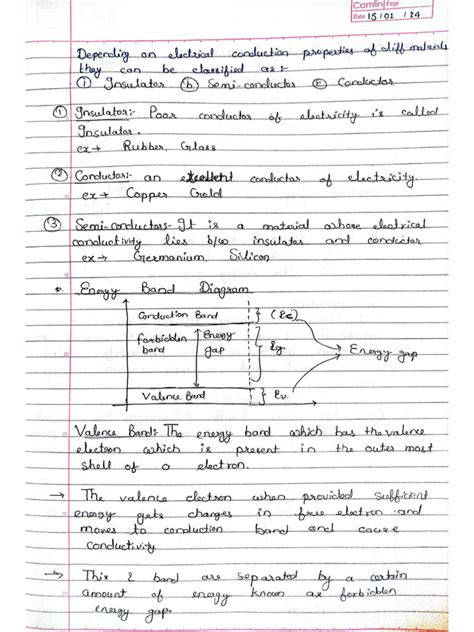 Camlin Page
Date 15 / 01 / 24
Depending on electrical conduction properties of diff materials
they can be classified as:-
① Insulator ⓑ Semi-conductor ⓒ Conductor
① Insulator:- Poor conductor of electricity is called
Insulator.
ex → Rubber, Glass
② Conductor:- an excellent conductor of electricity.
ex → Copper Gold
③ Semi-conductors- It is a material whose electrical
conductivity lies b/w insulator and conductor
ex → Germanium, Silicon
Energy Band Diagram
Conduction Band } (Ec)
forbidden band Energy gap } Eg → Energy gap
Valence Band } Ev
Valence Band:- The energy band which has the valence
electron which is present in the outer most
shell of a electron.
→ The valence electron when provided sufficient
energy gets changes in free electron and
moves to conduction band and cause
conductivity
→ This 2 band are separated by a certain
amount of energy known as forbidden
energy gap.